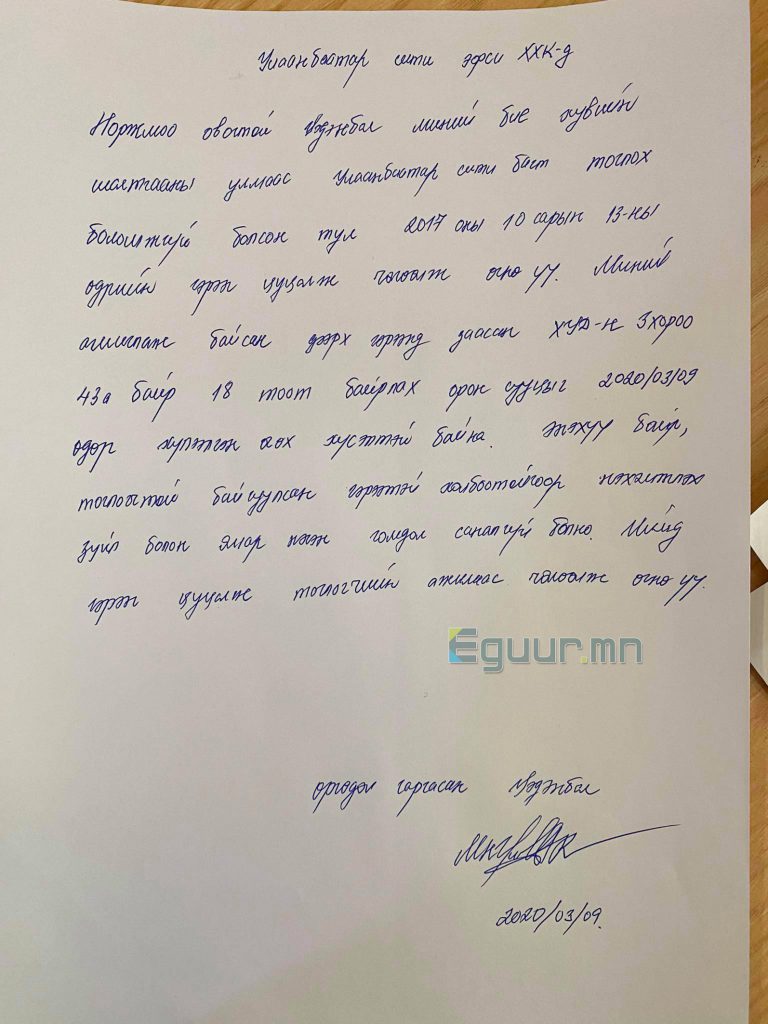 Улаанбаатар сити эфси ХХК-д
Норжмоо овогтой Цэдэнбал миний бие хувийн
шалтгааны улмаас Улаанбаатар сити багт тоглох
боломжгүй болсон тул 2017 оны 10 сарын 13-ны
өдрийн гэрээг цуцалж чөлөөлж өгнө үү. Миний
ашиглаж байсан дээрх гэрээнд заасан ХУД-н 3 хороо
43а байр 18 тоот байрлах орон сууцыг 2020/03/09
өдөр хүлээлгэн өгөх хүсэлтэй байна. Энэхүү байр,
тоглогчтой байгуулсан гэрээтэй холбоотойгоор нэхэмжлэх
зүйл болон ямар нэгэн гомдол саналгүй болно. Иймд
гэрээг цуцалж тоглогчийн ажлаас чөлөөлж өгнө үү.
Eguur.mn
өргөдөл гаргасан Цэдэнбал
2020/03/09.